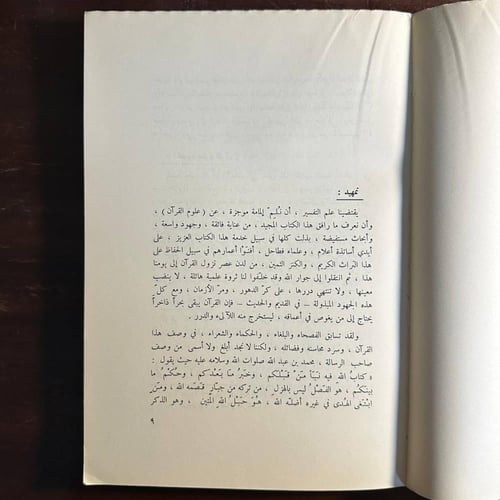 تمهيد :
يقتضينا علم التفسير ، أن نُلِمّ إلمامة موجزة ، عن (علوم القرآن) ،
وأن نعرف ما رافق هذا الكتاب المجيد ، من عناية فائقة ، وجهود واسعة ،
وأبحاث مستفيضة ، بذلت كلها في سبيل خدمة هذا الكتاب العزيز ، على
أيدي أساتذة أعلام ، وعلماء فطاحل ، أفنَوْا أعمارهم في سبيل الحفاظ على
هذا التراث الكريم ، والكنز الثمين ، من لدن عصر نزول القرآن إلى يومنا
هذا ، ثم انتقلوا إلى جوار الله وقد خلّفوا لنا ثروة علمية هائلة ، لا ينضب
معينها ، ولا تنتهي دررها ، على كرّ الدهور ، ومرّ الأزمان ، ومع كلّ
هذه الجهود المبذولة – في القديم والحديث – فإن القرآن يبقى بحراً ذاخراً
يحتاج إلى من يغوص في أعماقه ، ليستخرج منه اللآلىء والدرر .
ولقد تسابق الفصحاء والبلغاء ، والحكماء والشعراء ، في وصف هذا
القرآن ، وسرد محاسنه وفضائله ، ولكننا لا نجد أبلغ ولا أسمى من وصف
صاحب الرسالة ، محمد بن عبد الله صلوات الله وسلامه عليه حيث يقول :
« كتابُ الله فيه نَبَأُ مَنْ قَبْلَكُم ، وخَبَرُ ما بَعْدَكم ، وحُكْمُ ما
بينَكُم ، هو الفَصْلُ ليس بالهزل ، من تركه من جبّار قَصَمَه الله ، ومَنْ
ابتغَى الهُدى في غيره أضلّه الله ، هُوَ حَبْلُ اللهِ المَتين ، وهو الذكر
٩